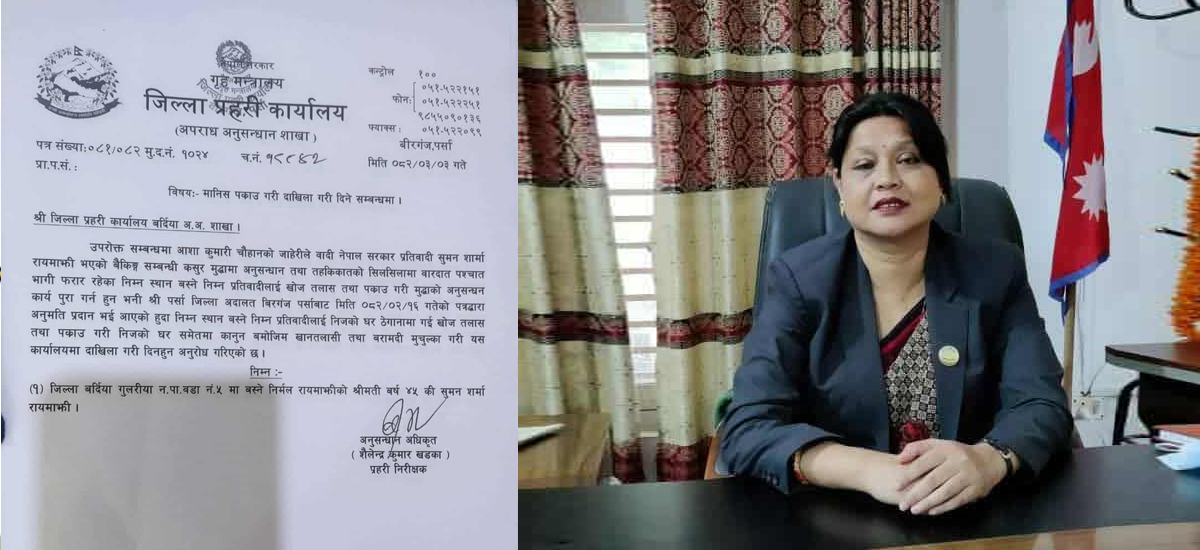 नेपाल सरकार
गृह मन्त्रालय
जिल्ला प्रहरी कार्यालय
(अपराध अनुसन्धान शाखा)
कन्ट्रोल १००
फोनः ०५१-५२२१५१
०५१-५२२२५१
९८५५०९०१३६
फ्याक्स : ०५१-५२२०९९
बीरगंज,पर्सा
पत्र संख्या:०८१/०८२ मु.द.नं. १०२४ च.नं.
मिति ०८२/०३/०३ गते
प्रा.प.सं. :
विषयः- मानिस पकाउ गरी दाखिला गरी दिने सम्बन्धमा ।
श्री जिल्ला प्रहरी कार्यालय बर्दिया अ.अ. शाखा ।
उपरोक्त सम्बन्धमा आशा कुमारी चौहानको जाहेरीले वादी नेपाल सरकार प्रतिवादी सुमन शर्मा
रायमाझी भएको बैकिङ्ग सम्बन्धी कसुर मुद्धामा अनुसन्धान तथा तहकिकातको सिलसिलामा बारदात पश्चात
भागी फरार रहेका निम्न स्थान बस्ने निम्न प्रतिवादीलाई खोज तलास तथा पकाउ गरी मुद्धाको अनुसन्धन
कार्य पुरा गर्न हुन भनी श्री पर्सा जिल्ला अदालत बिरगंज पर्साबाट मिति ०८२/०२/१६ गतेको पत्रद्वारा
अनुमति प्रदान भई आएको हुदा निम्न स्थान बस्ने निम्न प्रतिवादीलाई निजको घर ठेगानामा गई खोज तलास
तथा पकाउ गरी निजको घर समेतमा कानुन बमोजिम खानतलासी तथा बरामदी मुचुल्का गरी यस
कार्यालयमा दाखिला गरी दिनहुन अनुरोध गरिएको छ ।
निम्न :-
(१) जिल्ला बर्दिया गुलरीया न.पा.बडा नं.५ मा बस्ने निर्मल रायमाझीको श्रीमती बर्ष ४५ की सुमन शर्मा
रायमाझी ।
अनुसन्धान अधिकृत
( शैलेन्द्र कुमार खडका )
प्रहरी निरीक्षक